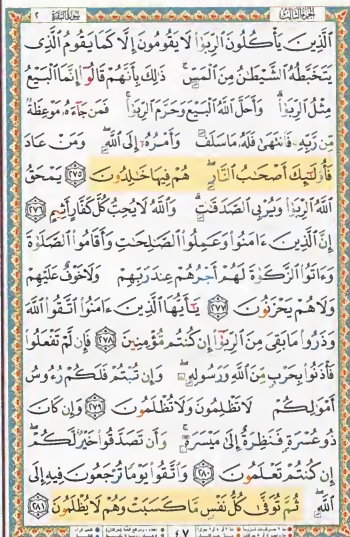 الجزء الثالث سورة البقرة ٢
ٱلَّذِينَ يَأْكُلُونَ ٱلرِّبَوٰا۟ لَا يَقُومُونَ إِلَّا كَمَا يَقُومُ ٱلَّذِى
يَتَخَبَّطُهُ ٱلشَّيْطَٰنُ مِنَ ٱلْمَسِّ ۚ ذَٰلِكَ بِأَنَّهُمْ قَالُوٓا۟ إِنَّمَا ٱلْبَيْعُ
مِثْلُ ٱلرِّبَوٰا۟ ۗ وَأَحَلَّ ٱللَّهُ ٱلْبَيْعَ وَحَرَّمَ ٱلرِّبَوٰا۟ ۚ فَمَن جَآءَهُۥ مَوْعِظَةٌ
مِّن رَّبِّهِۦ فَٱنتَهَىٰ فَلَهُۥ مَا سَلَفَ وَأَمْرُهُۥٓ إِلَى ٱللَّهِ ۖ وَمَنْ عَادَ
فَأُو۟لَٰٓئِكَ أَصْحَٰبُ ٱلنَّارِ ۖ هُمْ فِيهَا خَٰلِدُونَ ٢٧٥ يَمْحَقُ
ٱللَّهُ ٱلرِّبَوٰا۟ وَيُرْبِى ٱلصَّدَقَٰتِ ۗ وَٱللَّهُ لَا يُحِبُّ كُلَّ كَفَّارٍ أَثِيمٍ ٢٧٦
إِنَّ ٱلَّذِينَ ءَامَنُوا۟ وَعَمِلُوا۟ ٱلصَّٰلِحَٰتِ وَأَقَامُوا۟ ٱلصَّلَوٰةَ
وَءَاتَوُا۟ ٱلزَّكَوٰةَ لَهُمْ أَجْرُهُمْ عِندَ رَبِّهِمْ وَلَا خَوْفٌ عَلَيْهِمْ
وَلَا هُمْ يَحْزَنُونَ ٢٧٧ يَٰٓأَيُّهَا ٱلَّذِينَ ءَامَنُوا۟ ٱتَّقُوا۟ ٱللَّهَ
وَذَرُوا۟ مَا بَقِىَ مِنَ ٱلرِّبَوٰٓا۟ إِن كُنتُم مُّؤْمِنِينَ ٢٧٨ فَإِن لَّمْ تَفْعَلُوا۟
فَأْذَنُوا۟ بِحَرْبٍ مِّنَ ٱللَّهِ وَرَسُولِهِۦ ۖ وَإِن تُبْتُمْ فَلَكُمْ رُءُوسُ
أَمْوَٰلِكُمْ لَا تَظْلِمُونَ وَلَا تُظْلَمُونَ ٢٧٩ وَإِن كَانَ
ذُو عُسْرَةٍ فَنَظِرَةٌ إِلَىٰ مَيْسَرَةٍ ۚ وَأَن تَصَدَّقُوا۟ خَيْرٌ لَّكُمْ ۖ
إِن كُنتُمْ تَعْلَمُونَ ٢٨٠ وَٱتَّقُوا۟ يَوْمًا تُرْجَعُونَ فِيهِ إِلَى
ٱللَّهِ ۖ ثُمَّ تُوَفَّىٰ كُلُّ نَفْسٍ مَّا كَسَبَتْ وَهُمْ لَا يُظْلَمُونَ ٢٨١
٤٧